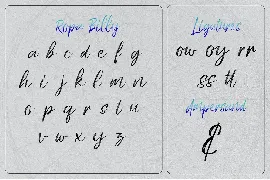 Rope Billy
a b c d e f g
h i j k l m n
o p q r s t u
v w x y z
Ligatures
ow oy rr
ss tt
Ampersand
&